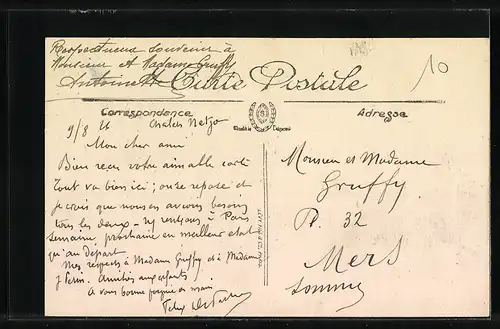 Respectueux souvenir à
Monsieur et Madame Gruffy
Antoinette
Carte Postale
10
Correspondance
Adresse
9/8 26
Mon cher ami
Bien reçu votre aimable carte
Tout va bien ici ; on se repose et
je crois que nous en avons besoin
tous les deux - ns rentrons à Paris
semaine prochaine en meilleur état
qu'au départ.
Mes respects à Madame Gruffy et à Madame
Amitiés aux enfants
A vous bonne poignée de main
Monsieur et Madame
Gruffy
P. 32
Mers
Somme